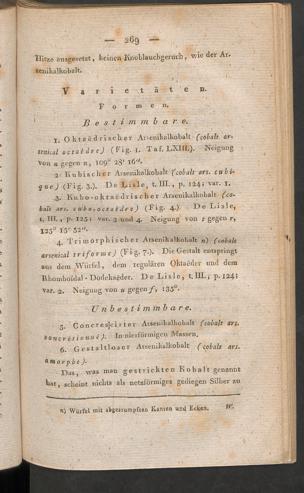 — 269 —
Hitze ausgesetzt, keinen Knoblauchgeruch, wie der Ar-
senikalkobalt.
Varietäten.
Formen.
Bestimmbare.
1. Oktaëdrischer Arsenikalkobalt (cobalt ar-
senical octaèdre) (Fig. 1. Taf. LXIII.). Neigung
von n gegen n, 109° 28' 16".
2. Kubischer Arsenikalkobalt (cobalt ars. cubi-
que) (Fig. 3.). De Lisle, t. III., p. 124; var. 1.
3. Kubo-oktaëdrischer Arsenikalkobalt (co-
balt ars. cubo-octaèdre) (Fig. 4.) De Lisle,
t. III., p. 125; var. 3 und 4. Neigung von s gegen r,
125° 15' 52".
4. Trimorphischer Arsenikalkobalt n) (cobalt
arsenical triforme) (Fig. 7.). Die Gestalt entspringt
aus dem Würfel, dem regulären Oktaëder und dem
Rhomboïdal-Dodekaëder. De Lisle, t. III., p. 124;
var. 2. Neigung von n gegen f, 135°.
Unbestimmbare.
5. Concrescirter Arsenikalkobalt (cobalt ars.
concrétionné). In nierförmigen Massen.
6. Gestaltloser Arsenikalkobalt (cobalt ars.
amorphe).
Das, was man gestrickten Kobalt genannt
hat, scheint nichts als netzförmiges gediegen Silber zu
n) Würfel mit abgestumpften Kanten und Ecken. W.